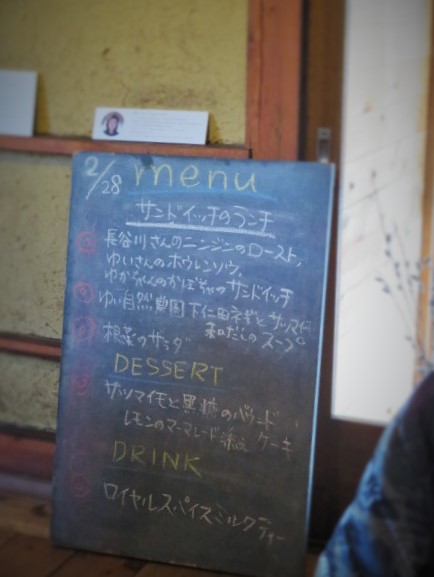 2/28 menu
サンドイッチのランチ
長谷川さんのニンジンのロースト、
ゆいさんのホウレンソウ、
ゆかちゃんのかぼちゃのサンドイッチ
ゆい自然農園 下仁田ネギとサツマイモ
和だしのスープ
根菜のサラダ
DESSERT
サツマイモと黒糖のパウンド
レモンのマーマレード添え ケーキ
DRINK
ロイヤルスパイスミルクティー